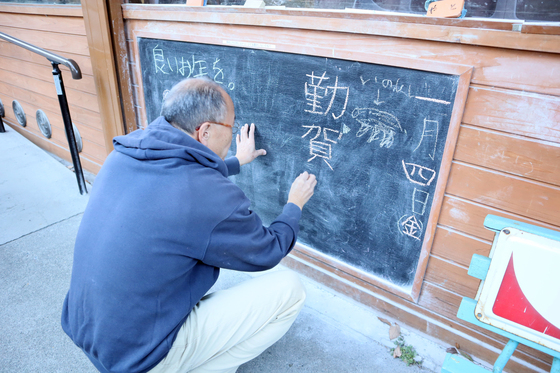 一月四日㊎
いのしし
勤賀
良いお年を。